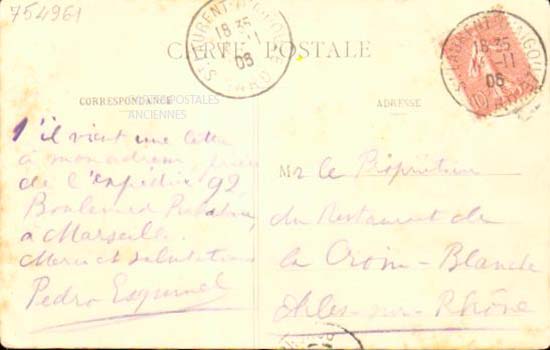 754961
CARTE POSTALE
ST LAURENT-D'AIGOUZE
18 35
-11
06
GARD
ST LAURENT-D'AIGOUZE
18 35
-11
06
CORRESPONDANCE
CARTES POSTALES
ANCIENNES
ADRESSE
S'il vient une lettre
à mon adresse, prière
de l'expédier 92
Boulevard
à Marseille.
Merci et salutations
Pedro Esquinel
Mr le Propriétaire
du Restaurant de
la Croix-Blanche
Arles-sur-Rhône